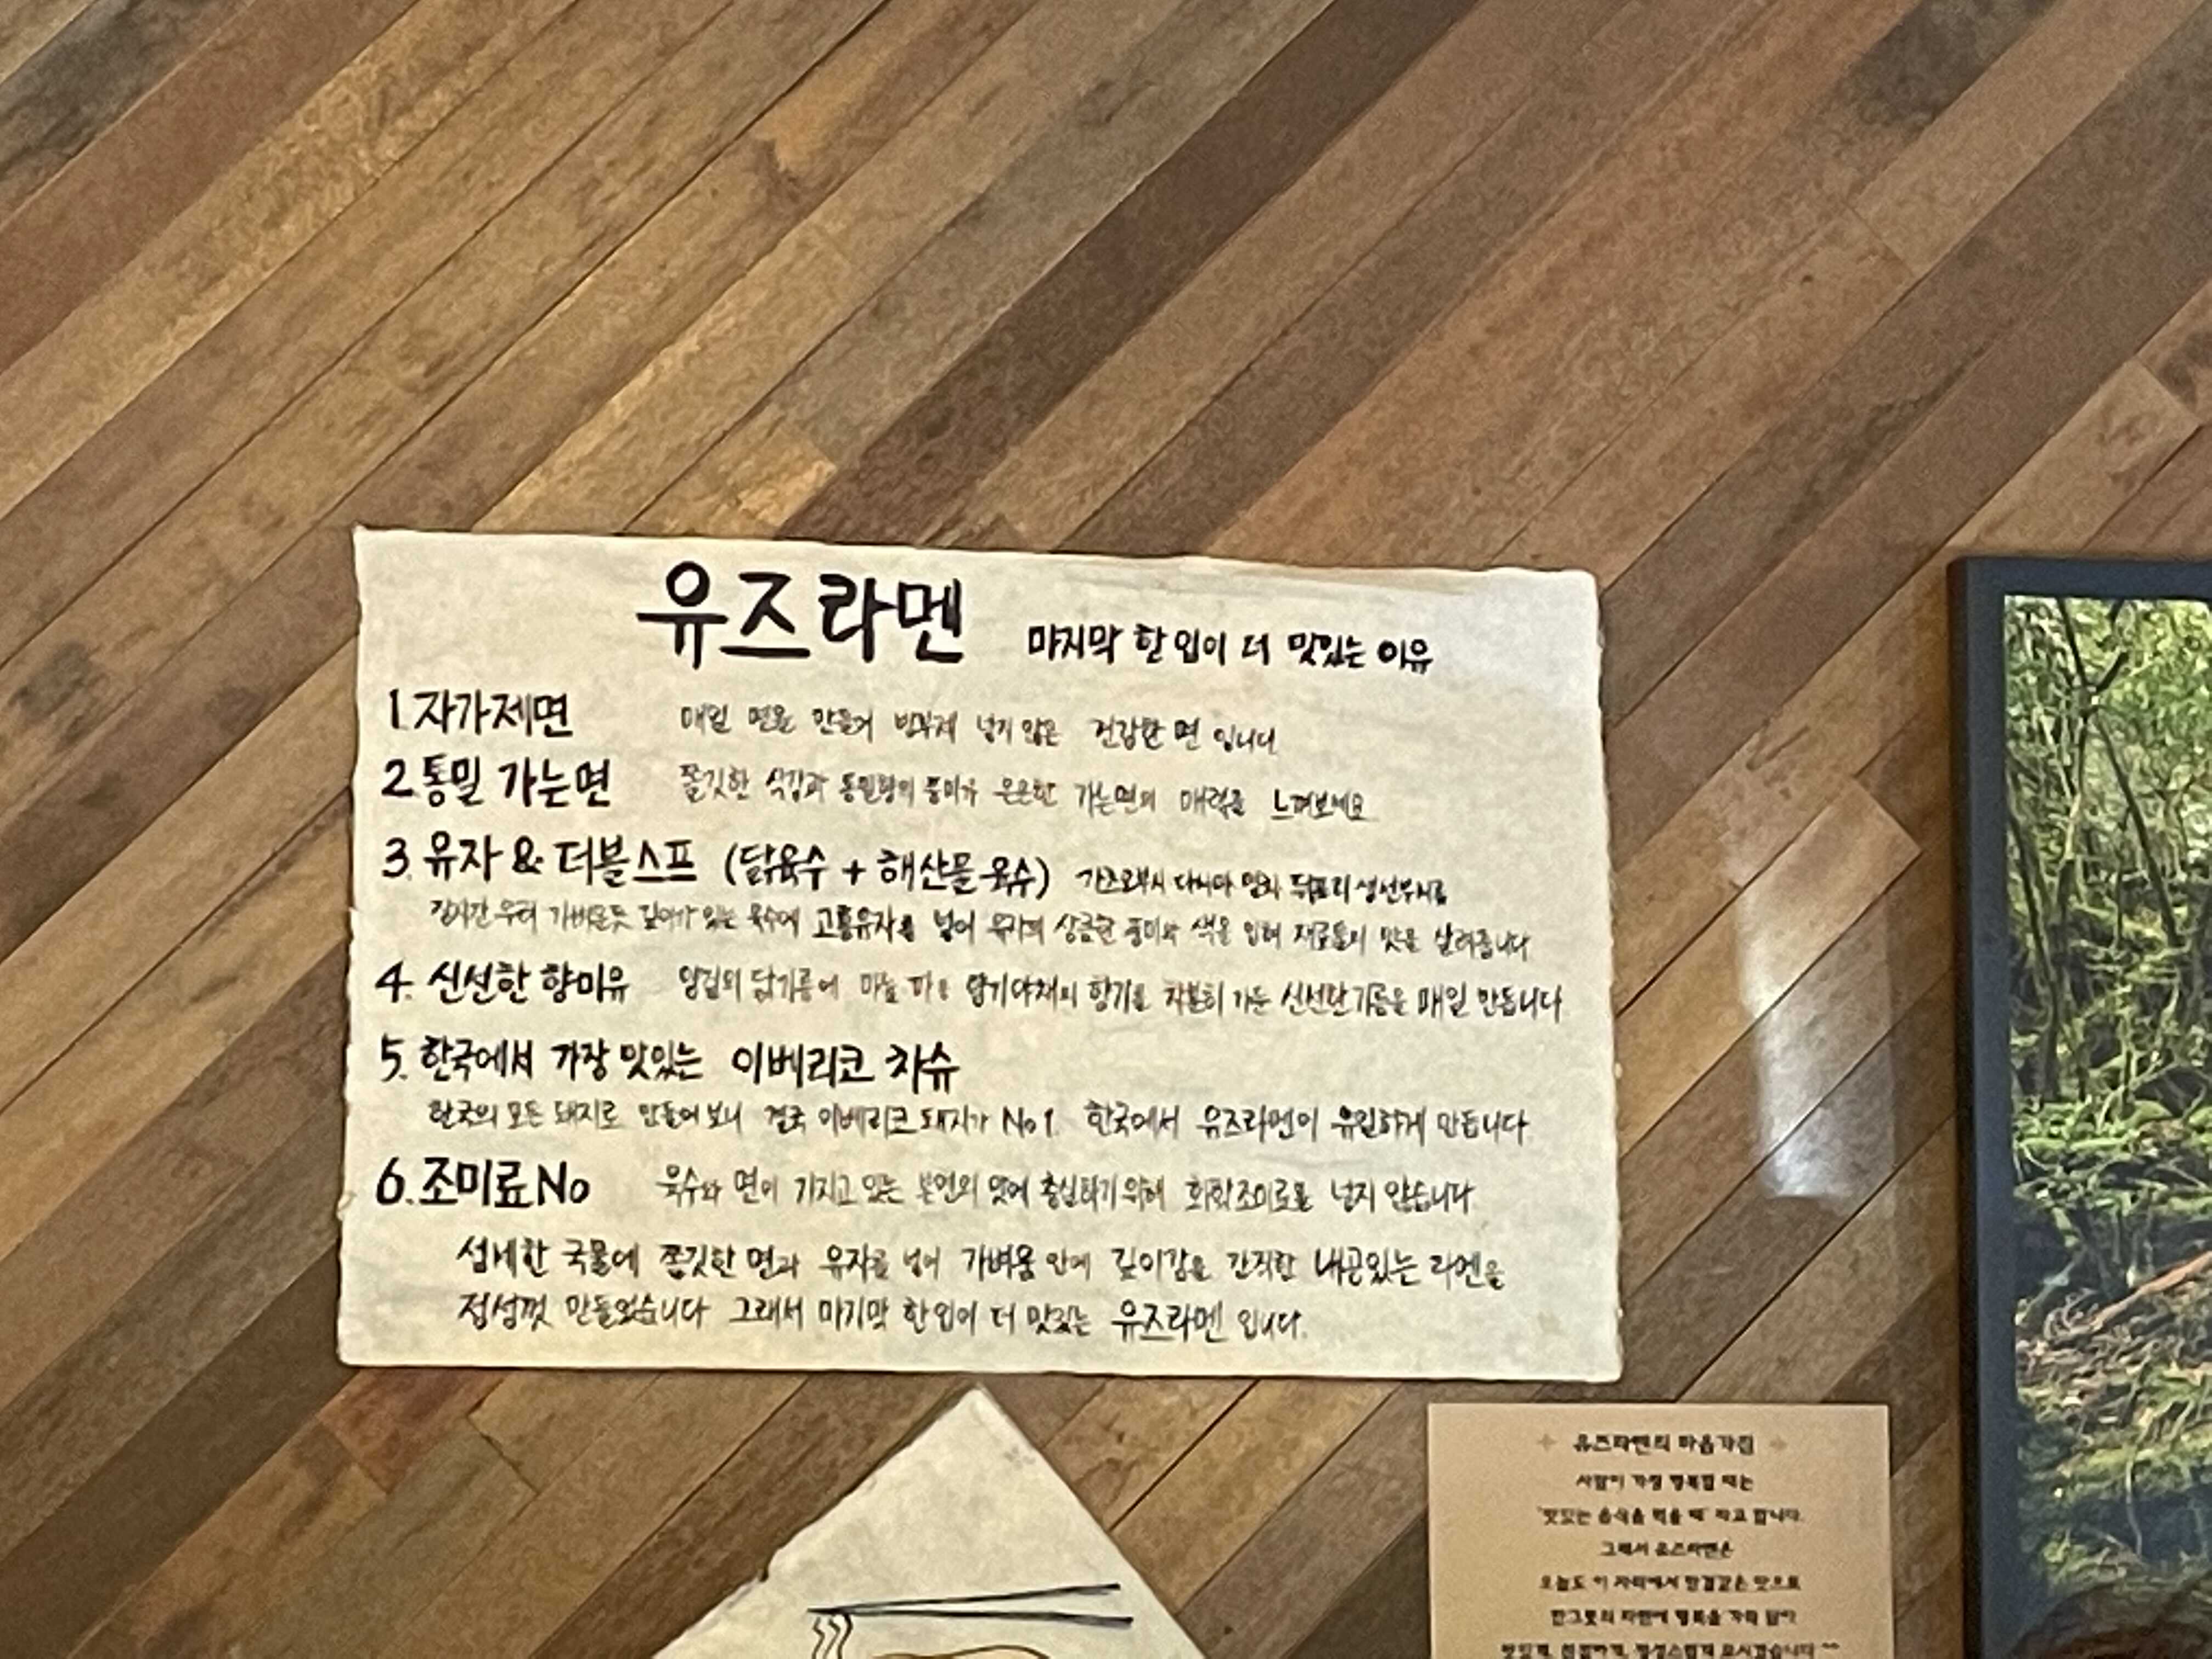 유즈라멘 마지막 한 입이 더 맛있는 이유
1. 자가제면 매일 면을 만들어 방부제 넣지 않은 건강한 면 입니다
2. 통밀 가는면 쫄깃한 식감과 통밀향의 풍미가 은은한 가는면의 매력을 느껴보세요
3. 유자 & 더블스프 (닭육수 + 해산물육수) 가츠오부시 다시마 멸치 뒤포리 생선부시를
긴시간 우려 가벼운듯 깊이가 있는 육수에 고흥유자를 넣어 유자의 상큼한 풍미와 색을 입혀 재료들의 맛을 살려줍니다
4. 신선한 향미유 양질의 닭기름에 마늘 파 등 향기야채의 향기를 차분히 가둔 신선한 기름을 매일 만듭니다
5. 한국에서 가장 맛있는 이베리코 차슈
한국의 모든 돼지로 만들어 보니 결국 이베리코 돼지가 No1. 한국에서 유즈라멘이 유일하게 만듭니다
6. 조미료 No 육수와 면이 가지고 있는 본연의 맛에 충실하기 위해 화학조미료를 넣지 않습니다
섬세한 국물에 쫄깃한 면과 유자를 넣어 가벼움 안에 깊이감을 간직한 내공있는 라멘을
정성껏 만들었습니다 그래서 마지막 한입이 더 맛있는 유즈라멘 입니다.
유즈라멘의 마음가짐
사람이 가장 행복할 때는
'맛있는 음식을 먹을 때' 라고 합니다.
그래서 유즈라멘은
오늘도 이 자리에서 한결같은 맛으로
한그릇의 라멘에 행복을 가득 담아
맛있게, 친절하게, 정성스럽게 모시겠습니다 ^^